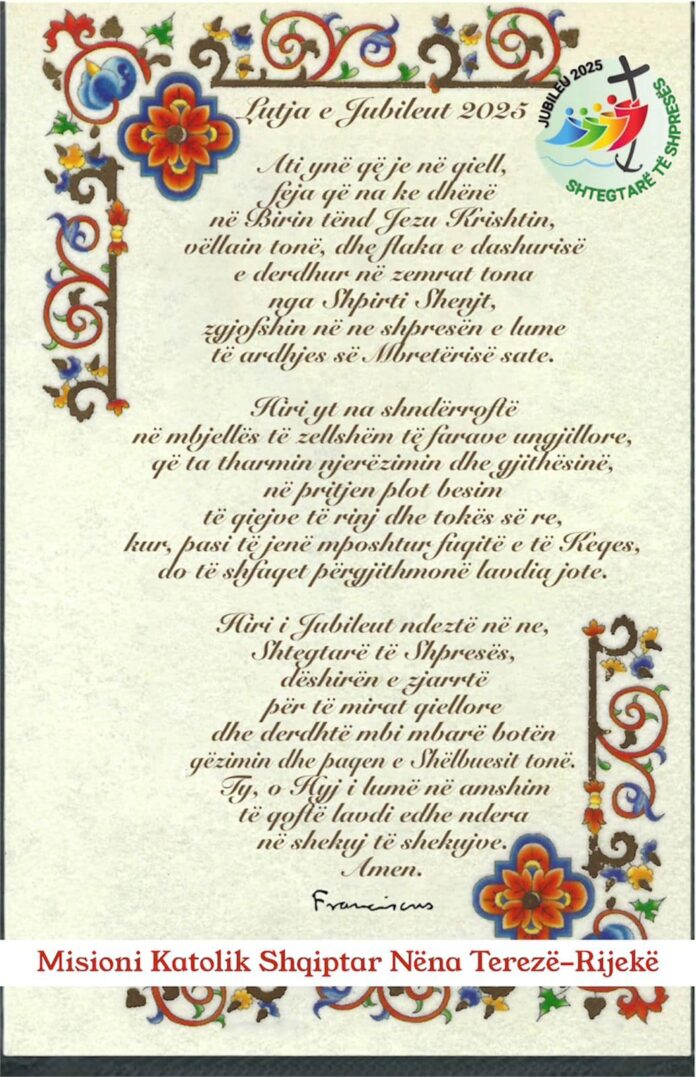 Lutja e Jubileut 2025
JUBILEU 2025
SHTEGTARË TË SHPRESËS
Ati ynë që je në qiell,
feja që na ke dhënë
në Birin tënd Jezu Krishtin,
vëllain tonë, dhe flaka e dashurisë
e derdhur në zemrat tona
nga Shpirti Shenjt,
zgjofshin në ne shpresën e lume
të ardhjes së Mbretërisë sate.
Hiri yt na shndërroftë
në mbjellës të zellshëm të farave ungjillore,
që ta tharmin njerëzimin dhe gjithësinë,
në pritjen plot besim
të qiejve të rinj dhe tokës së re,
kur, pasi të jenë mposhtur fuqitë e të Keqes,
do të shfaqet përgjithmonë lavdia jote.
Hiri i Jubileut ndeztë në ne,
Shtegtarë të Shpresës,
dëshirën e zjarrtë
për të mirat qiellore
dhe derdhtë mbi mbarë botën
gëzimin dhe paqen e Shëlbuesit tonë.
Ty, o Hyj i lumë në amshim
të qoftë lavdi edhe ndera
në shekuj të shekujve.
Amen.
Franciscus
Misioni Katolik Shqiptar Nëna Terezë-Rijekë